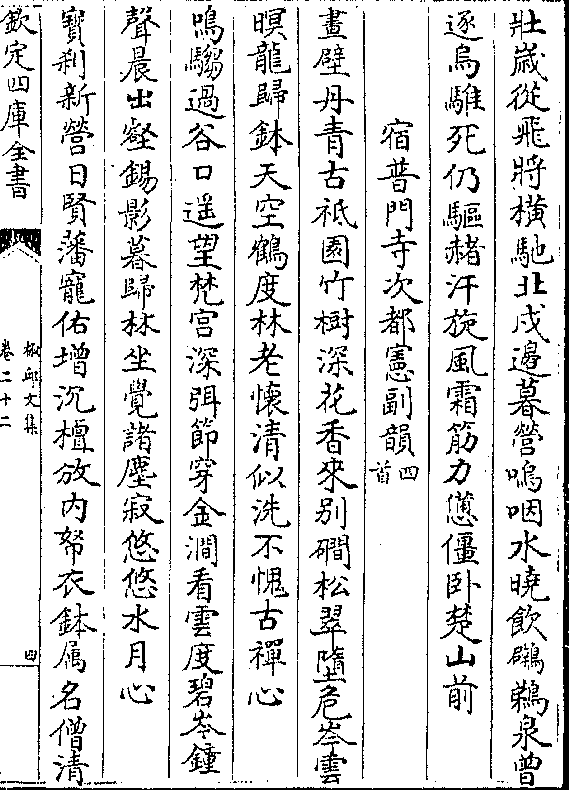 壯嵗從飛將横馳北戍邊暮營嗚咽水曉飲鸊鵜泉曽
逐烏騅死仍驅赭汗旋風霜筋力憊僵卧楚山前
宿普門寺次都憲副韻四首
畫壁丹青古祗園竹樹深花香來别磵松翠墮危岑雲
暝龍歸鉢天空鶴度林老懷清似洗不愧古禪心
鳴騶過谷口遥望梵宫深弭節穿金澗看雲度碧岑鍾
聲晨出壑錫影暮歸林坐覺諸塵寂悠悠水月心
寳刹新營日賢藩寵佑增沉檀放内帑衣鉢属名僧清
欽定四庫全書
卷二十二
四